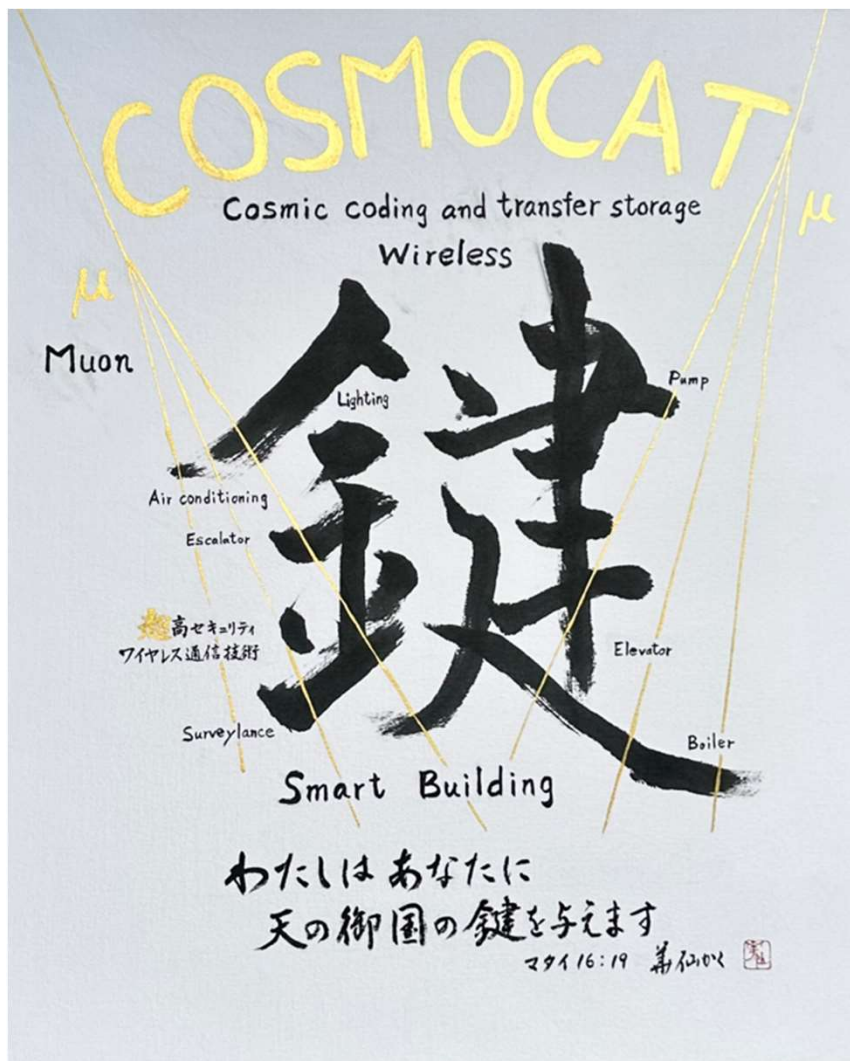 COSMOCAT
Cosmic coding and transfer storage
Wireless
μ
μ
Muon
鍵
Lighting
Pump
Air conditioning
Escalator
超高セキュリティ
ワイヤレス通信技術
Elevator
Surveylance
Boiler
Smart Building
わたしは あなたに
天の御国の鍵を与えます
マタイ16:19